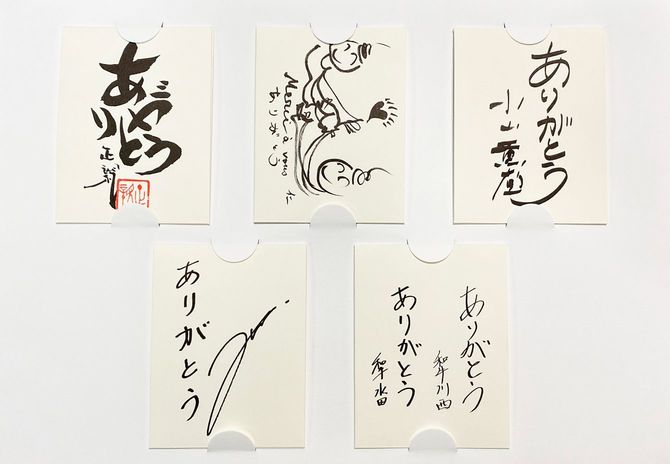 ありがとう
Merci à vous
ありがとう
仁
ありがとう
小山
ありがとう
ありがとう
ありがとう